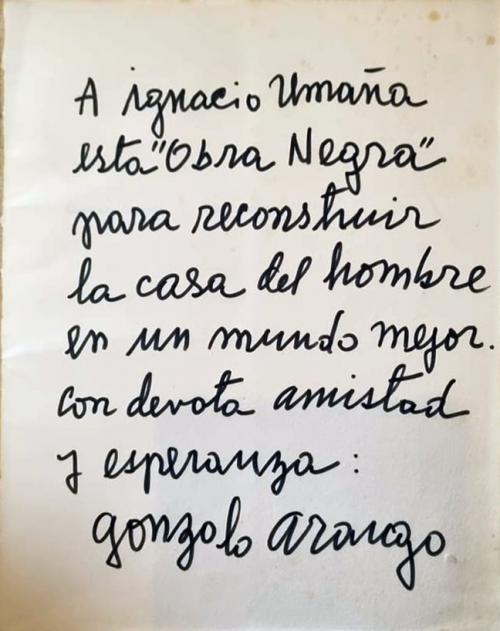 A ignacio Umaña
esta "Obra Negra"
para reconstruir
la casa del hombre
en un mundo mejor.
con devota amistad
y esperanza:
gonzalo arango